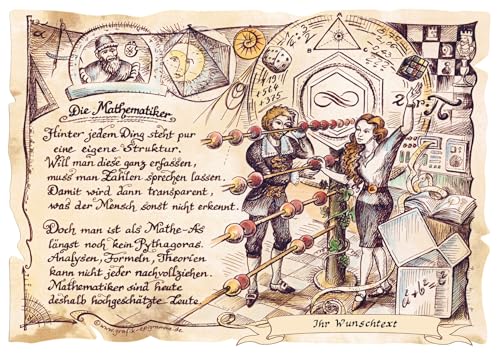 Die Mathematiker
Hinter jedem Ding steht pur
eine eigene Struktur.
Will man diese ganz erfassen,
muss man Zahlen sprechen lassen.
Damit wird dann transparent,
was der Mensch sonst nicht erkennt.
Doch man ist als Mathe-As
längst noch kein Pythagoras.
Analysen, Formeln, Theorien
kann nicht jeder nachvollziehen.
Mathematiker sind heute
deshalb hochgeschätzte Leute.
©www.grafik-epigramme.de
2πr
π
Ihr Wunschtext